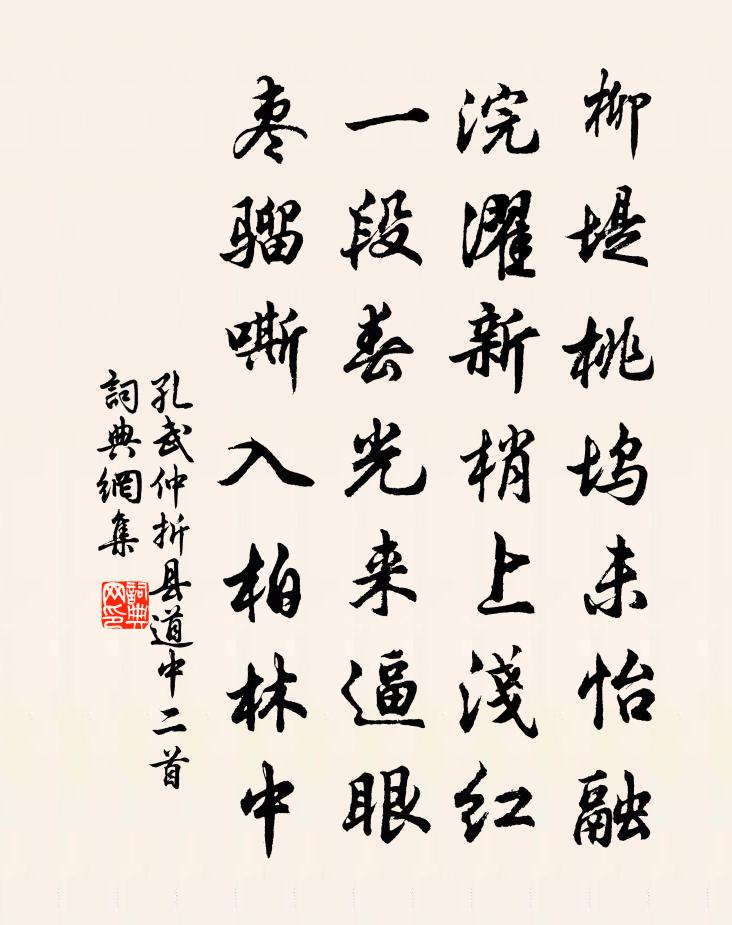 柳堤桃坞未怡融
浣濯新梢上淺红
一段春光来逼眼
枣骝嘶入柏林中
孔武仲折县道中二首
詞典網集
詞典网印